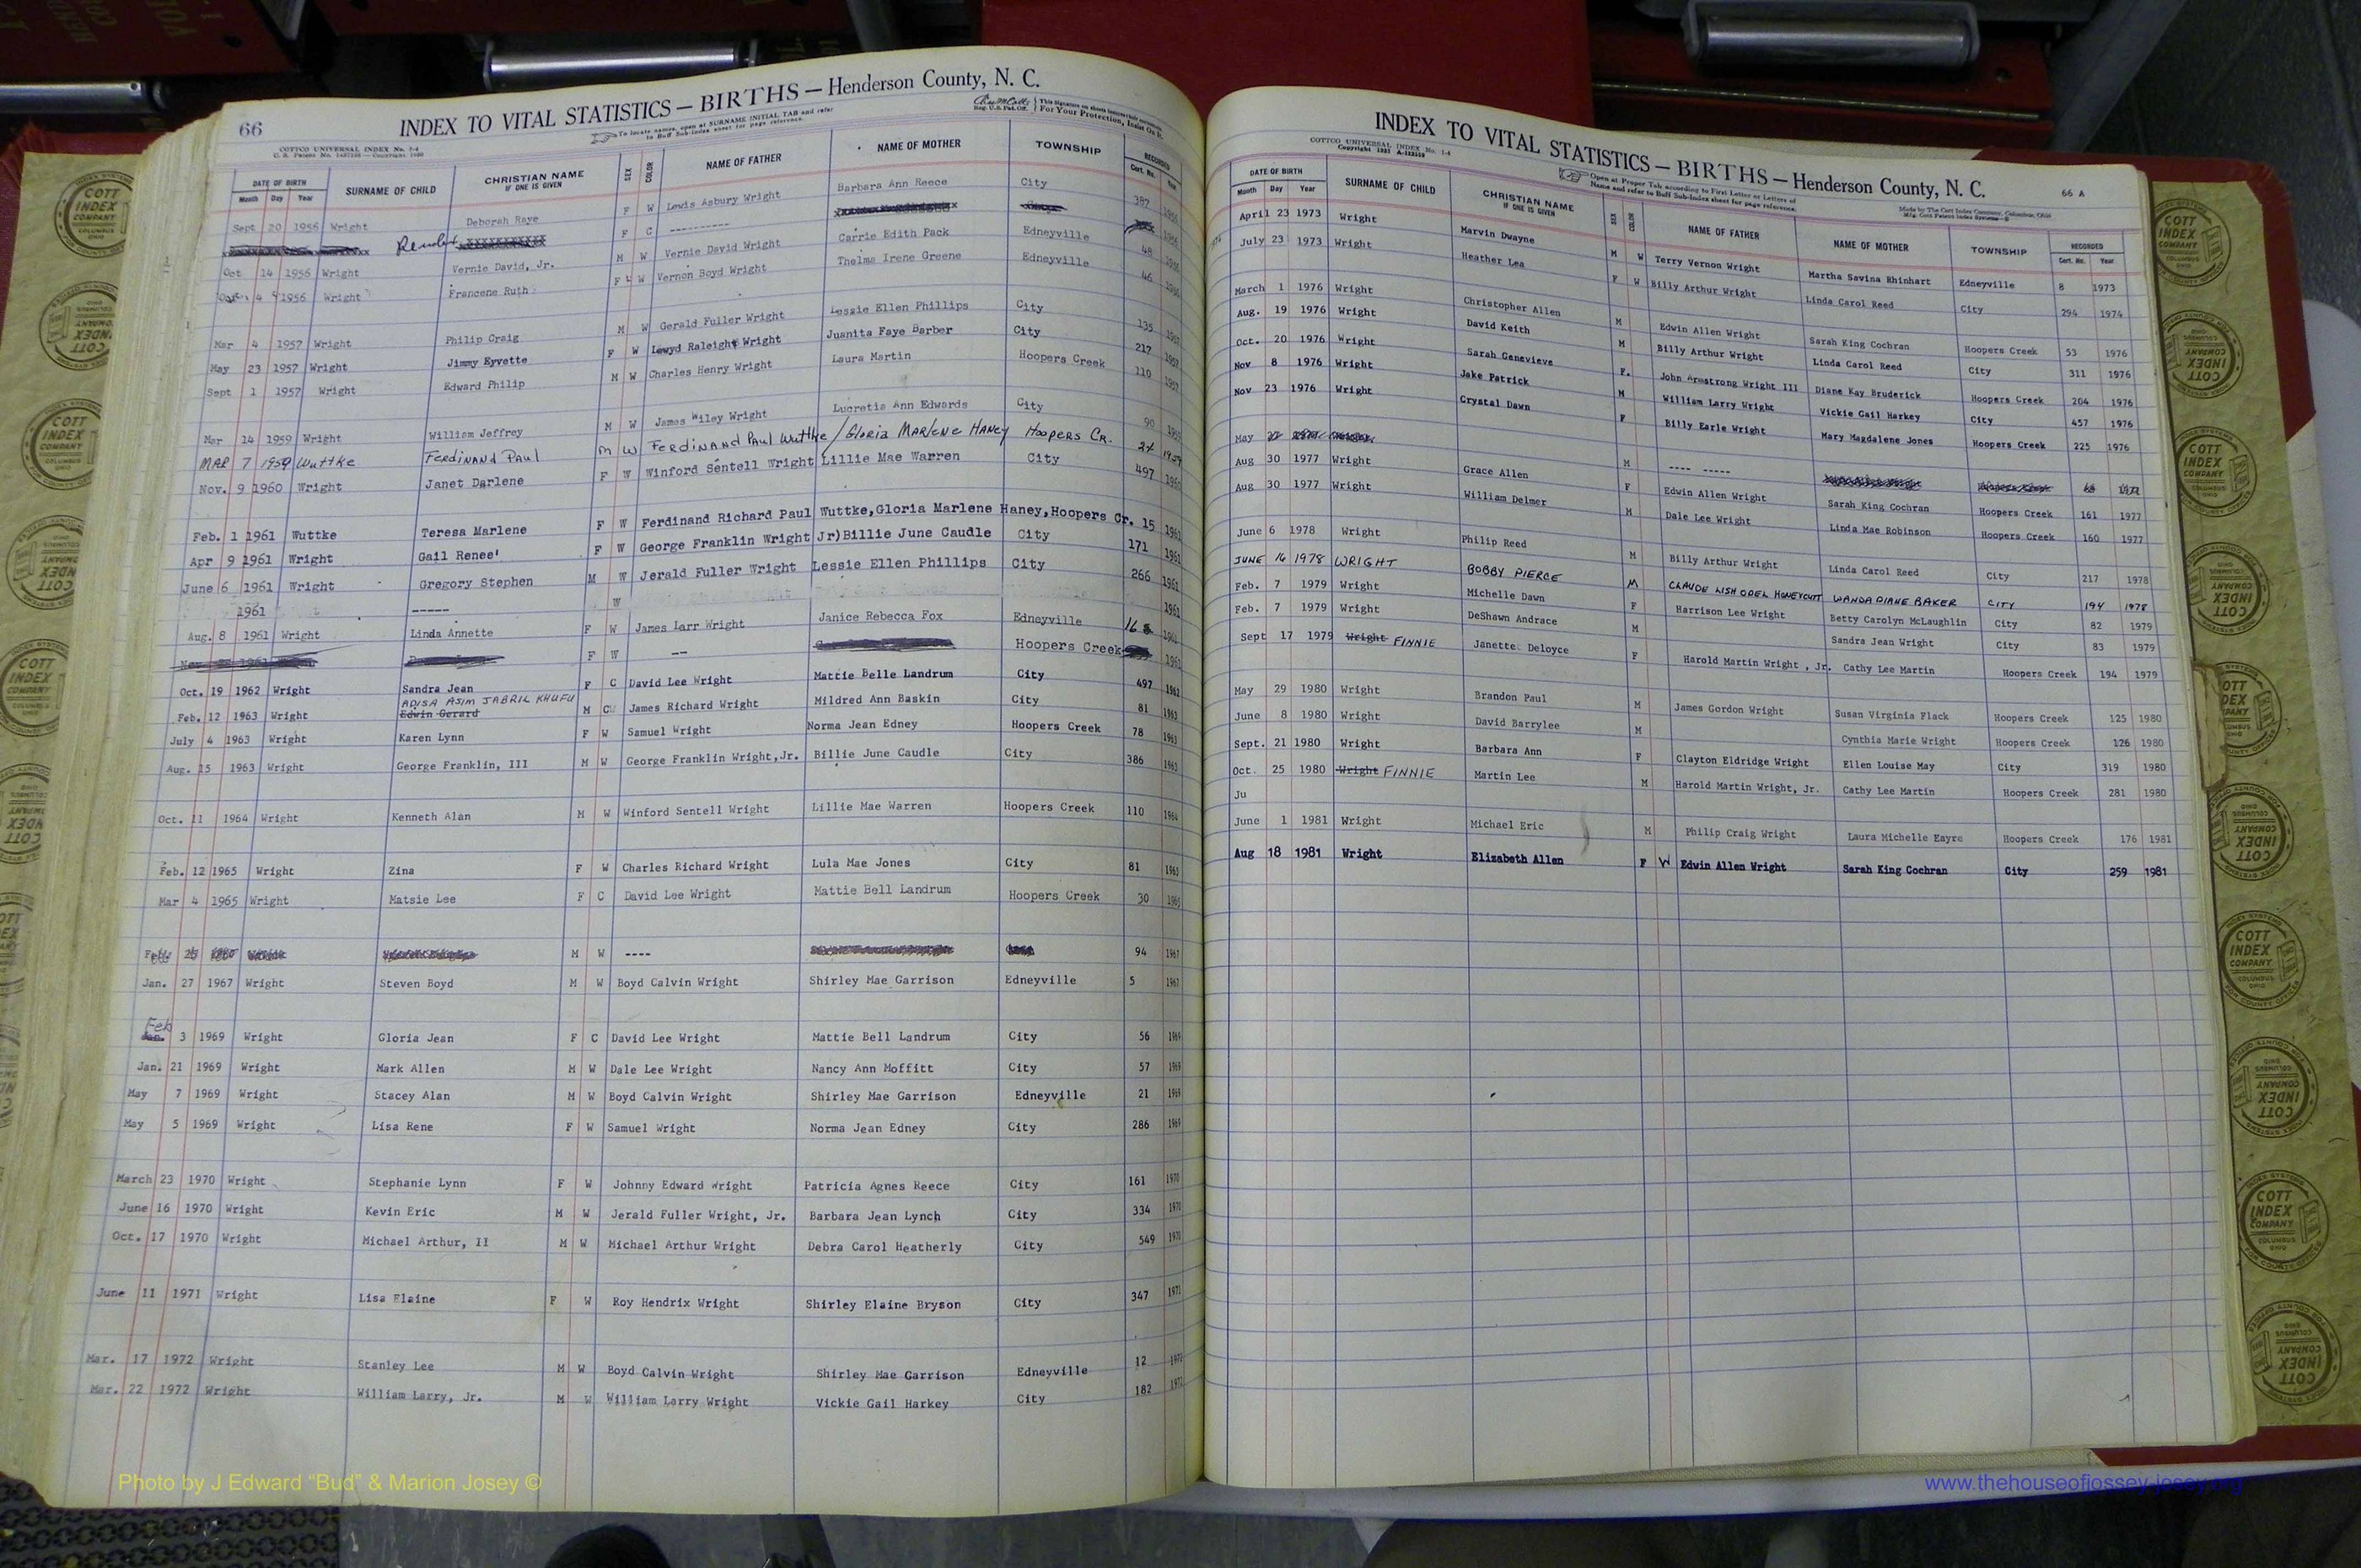 66
INDEX TO VITAL STATISTICS — BIRTHS — Henderson County, N. C.
COTTCO UNIVERSAL INDEX No. 1-4
To locate names, open at SURNAME INITIAL TAB and refer
to Buff Sub-Index sheet for page reference.
For Your Protection, Insist On It.
DATE OF BIRTH SURNAME OF CHILD CHRISTIAN NAME IF ONE IS GIVEN SEX COLOR NAME OF FATHER NAME OF MOTHER TOWNSHIP RECORDED
Month Day Year Cert. No. Year
Sept 20 1956 Wright Deborah Raye F W Lewis Asbury Wright Barbara Ann Reece City 382
F C ----------
Oct 14 1956 Wright Vernie David, Jr. M W Vernie David Wright Carrie Edith Pack Edneyville 48
4 1956 Wright Francene Ruth F W Vernon Boyd Wright Thelma Irene Greene Edneyville 46
Mar 4 1957 Wright Philip Craig M W Gerald Fuller Wright Lessie Ellen Phillips City 135 1957
May 23 1957 Wright Jimmy Eyvette F W Raleigh Wright Juanita Faye Barber City 217 1957
Sept 1 1957 Wright Edward Philip M W Charles Henry Wright Laura Martin Hoopers Creek 110 1957
Mar 14 1959 Wright William Jeffrey M W James Wiley Wright Lucretia Ann Edwards City 90 1959
MAR 7 1959 Wuttke FERDINAND PAUL M W FERDINAND PAUL Wuttke / GLORIA MARLENE HANEY HOOPERS CR. 24 1959
Nov. 9 1960 Wright Janet Darlene F W Winford Sentell Wright Lillie Mae Warren City 497 1960
Feb. 1 1961 Wuttke Teresa Marlene F W Ferdinand Richard Paul Wuttke,Gloria Marlene Haney,Hoopers Cr. 15 1961
Apr 9 1961 Wright Gail Renee' F W George Franklin Wright Jr)Billie June Caudle City 171 1961
June 6 1961 Wright Gregory Stephen M W Jerald Fuller Wright Lessie Ellen Phillips City 266 1961
1961 ----- W 1961
Aug. 8 1961 Wright Linda Annette F W James Larr Wright Janice Rebecca Fox Edneyville 16 1961
F W -- Hoopers Creek 1961
Oct. 19 1962 Wright Sandra Jean F C David Lee Wright Mattie Belle Landrum City 497 1962
ADISA ASIM JABRIL KHUFU
Feb. 12 1963 Wright Edwin Gerard M C James Richard Wright Mildred Ann Baskin City 81 1963
July 4 1963 Wright Karen Lynn F W Samuel Wright Norma Jean Edney Hoopers Creek 78 1963
Aug. 15 1963 Wright George Franklin, III M W George Franklin Wright,Jr. Billie June Caudle City 386 1963
Oct. 11 1964 Wright Kenneth Alan M W Winford Sentell Wright Lillie Mae Warren Hoopers Creek 110 1964
Feb. 12 1965 Wright Zina F W Charles Richard Wright Lula Mae Jones City 81
Mar 4 1965 Wright Matsie Lee F C David Lee Wright Mattie Bell Landrum Hoopers Creek 30 1965
M W ---- 94 1967
Jan. 27 1967 Wright Steven Boyd M W Boyd Calvin Wright Shirley Mae Garrison Edneyville 5 1967
Feb 3 1969 Wright Gloria Jean F C David Lee Wright Mattie Bell Landrum City 56 1969
Jan. 21 1969 Wright Mark Allen M W Dale Lee Wright Nancy Ann Moffitt City 57 1969
May 7 1969 Wright Stacey Alan M W Boyd Calvin Wright Shirley Mae Garrison Edneyville 21 1969
May 5 1969 Wright Lisa Rene F W Samuel Wright Norma Jean Edney City 286 1969
March 23 1970 Wright Stephanie Lynn F W Johnny Edward Wright Patricia Agnes Reece City 161 1970
June 16 1970 Wright Kevin Eric M W Jerald Fuller Wright, Jr. Barbara Jean Lynch City 334 1970
Oct. 17 1970 Wright Michael Arthur, II M W Michael Arthur Wright Debra Carol Heatherly City 549 1970
June 11 1971 Wright Lisa Elaine F W Roy Hendrix Wright Shirley Elaine Bryson City 347 1971
Mar. 17 1972 Wright Stanley Lee M W Boyd Calvin Wright Shirley Mae Garrison Edneyville 12 1972
Mar. 22 1972 Wright William Larry, Jr. M W William Larry Wright Vickie Gail Harkey City 182 1972
INDEX TO VITAL STATISTICS — BIRTHS — Henderson County, N. C.
66 A
COTTCO UNIVERSAL INDEX No. 1-4
Open at Proper Tab according to First Letter or Letters of
Name and refer to Buff Sub-Index sheet for page reference.
Made by The Cott Index Company, Columbus, Ohio
DATE OF BIRTH SURNAME OF CHILD CHRISTIAN NAME IF ONE IS GIVEN SEX COLOR NAME OF FATHER NAME OF MOTHER TOWNSHIP RECORDED
Month Day Year Cert. No. Year
April 23 1973 Wright Marvin Dwayne M W Terry Vernon Wright Martha Savina Rhinhart Edneyville 8 1973
July 23 1973 Wright Heather Lea F W Billy Arthur Wright Linda Carol Reed City 294 1974
March 1 1976 Wright Christopher Allen M Edwin Allen Wright Sarah King Cochran Hoopers Creek 53 1976
Aug. 19 1976 Wright David Keith M Billy Arthur Wright Linda Carol Reed City 311 1976
Oct. 20 1976 Wright Sarah Genevieve F. John Armstrong Wright III Diane Kay Bruderick Hoopers Creek 204 1976
Nov 8 1976 Wright Jake Patrick M William Larry Wright Vickie Gail Harkey City 457 1976
Nov 23 1976 Wright Crystal Dawn F Billy Earle Wright Mary Magdalene Jones Hoopers Creek 225 1976
May M ---- -----
Aug 30 1977 Wright Grace Allen F Edwin Allen Wright Sarah King Cochran Hoopers Creek 161 1977
Aug 30 1977 Wright William Delmer M Dale Lee Wright Linda Mae Robinson Hoopers Creek 160 1977
June 6 1978 Wright Philip Reed M Billy Arthur Wright Linda Carol Reed City 217 1978
JUNE 14 1978 WRIGHT BOBBY PIERCE M CLAUDE LISH ODEL HONEYCUTT WANDA DIANE BAKER CITY 194 1978
Feb. 7 1979 Wright Michelle Dawn F Harrison Lee Wright Betty Carolyn McLaughlin City 82 1979
Feb. 7 1979 Wright DeShawn Andrace M Sandra Jean Wright City 83 1979
Sept 17 1979 Wright FINNIE Janette Deloyce F Harold Martin Wright , Jr. Cathy Lee Martin Hoopers Creek 194 1979
May 29 1980 Wright Brandon Paul M James Gordon Wright Susan Virginia Flack Hoopers Creek 125 1980
June 8 1980 Wright David Barrylee M Cynthia Marie Wright Hoopers Creek 126 1980
Sept. 21 1980 Wright Barbara Ann F Clayton Eldridge Wright Ellen Louise May City 319 1980
Oct. 25 1980 Wright FINNIE Martin Lee M Harold Martin Wright, Jr. Cathy Lee Martin Hoopers Creek 281 1980
Ju
June 1 1981 Wright Michael Eric M Philip Craig Wright Laura Michelle Eayre Hoopers Creek 176 1981
Aug 18 1981 Wright Elizabeth Allen F W Edwin Allen Wright Sarah King Cochran City 259 1981
COTT INDEX COMPANY COLUMBUS OHIO
Photo by J Edward “Bud” & Marion Josey ©
www.thehouseofjossey-josey.org